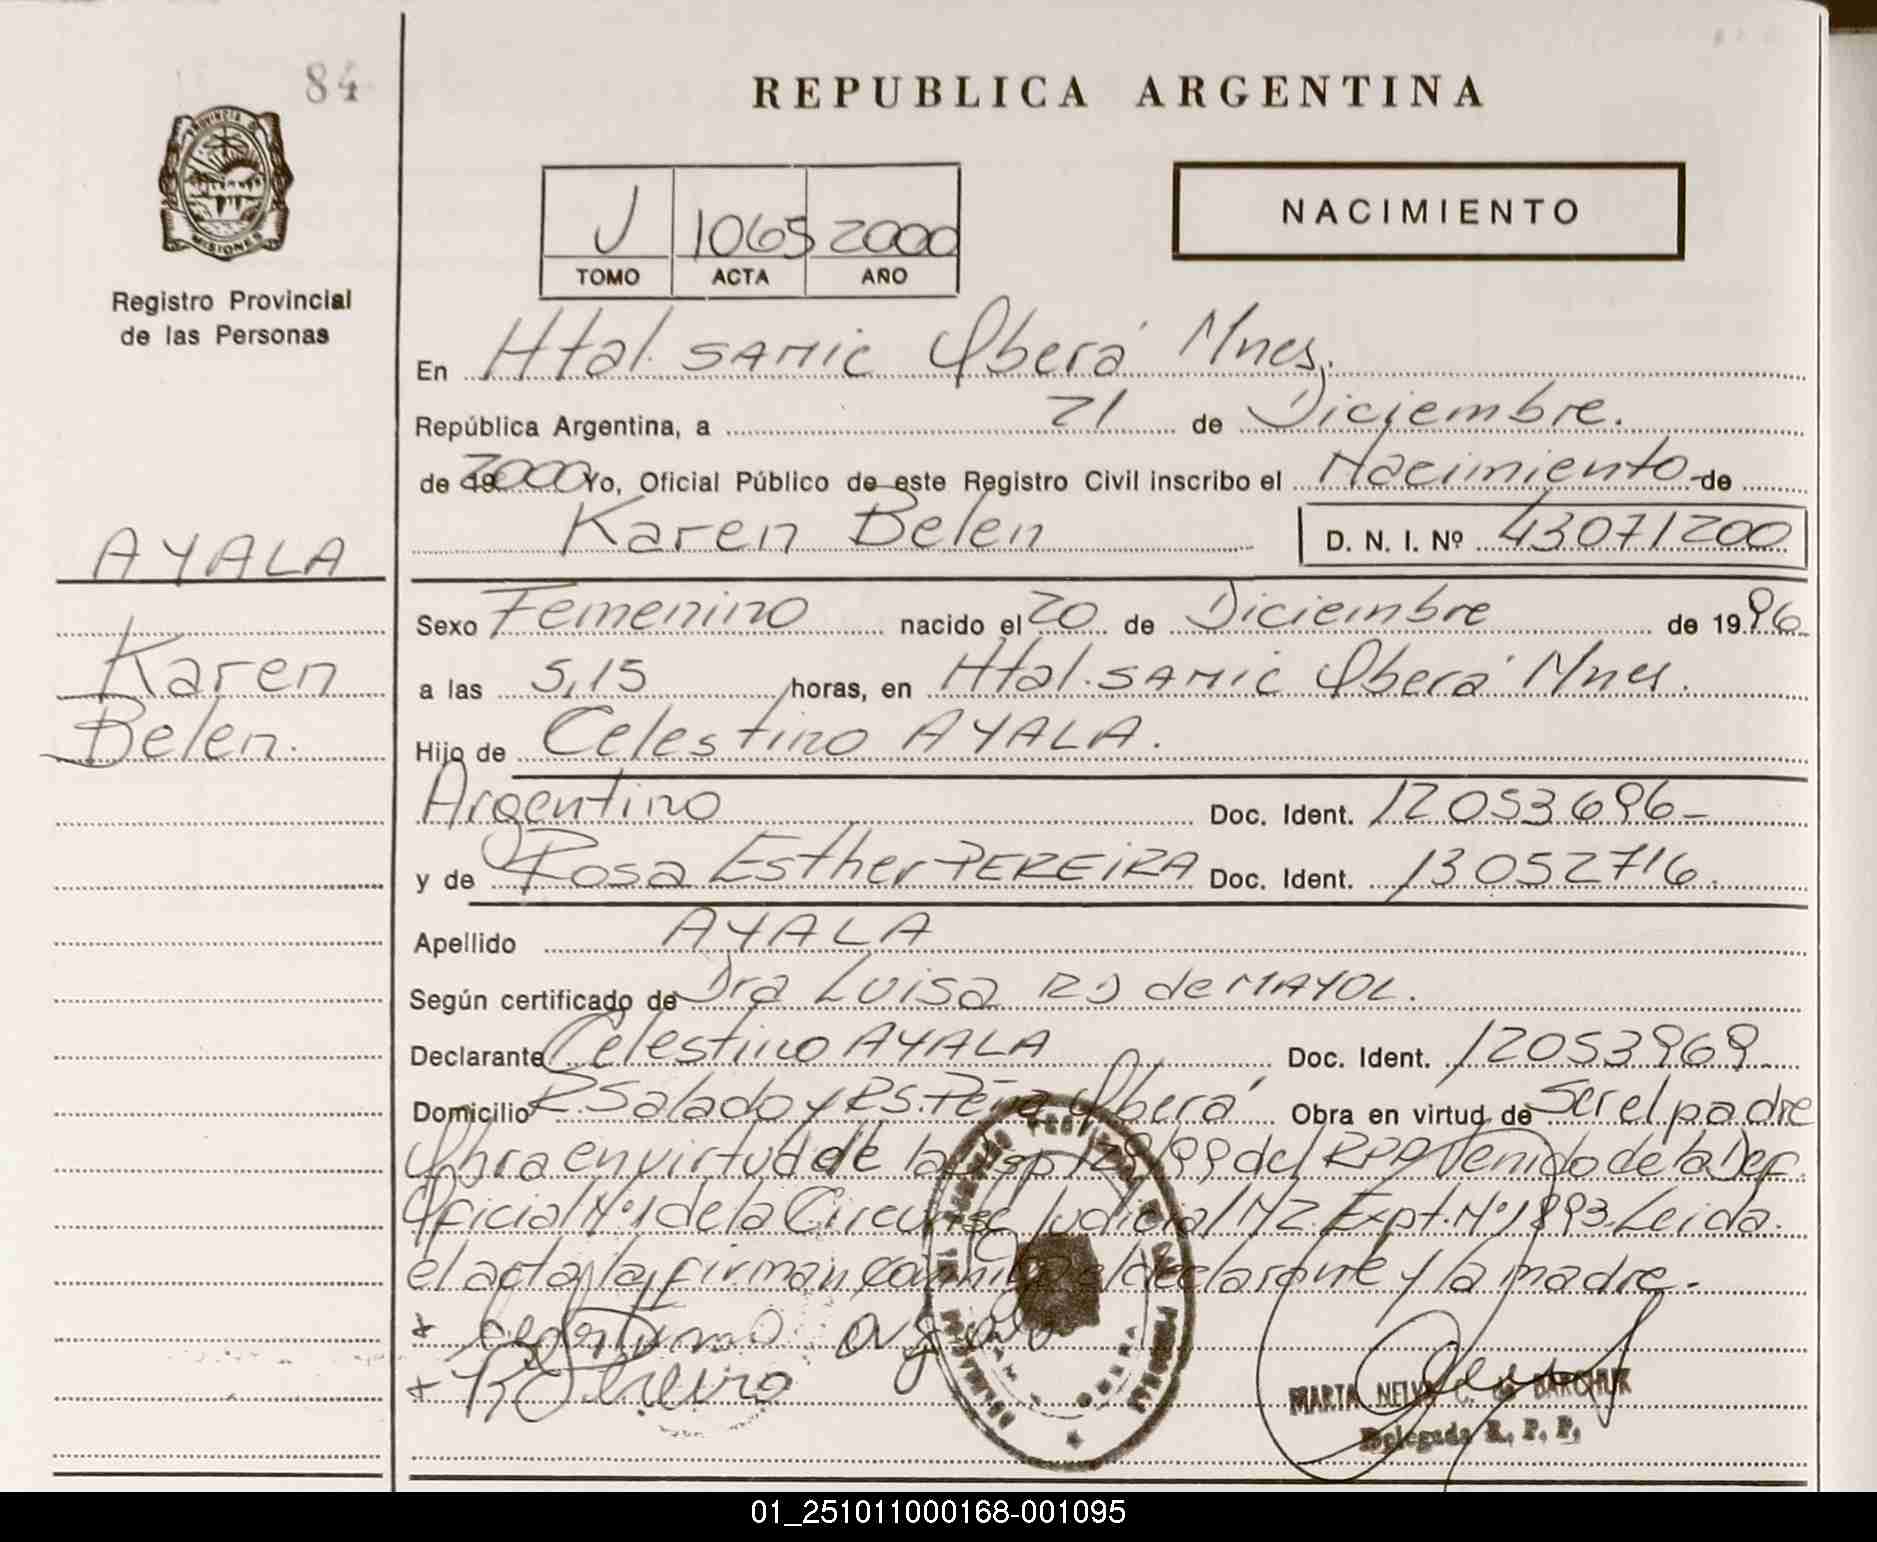 84
REPUBLICA ARGENTINA
PROVINCIA DE
MISIONES
Registro Provincial
de las Personas
NACIMIENTO
J 1065 2000
TOMO ACTA AÑO
En Htal. SAMIC Oberá Mnes.
República Argentina, a 21 de Diciembre.
de 19 2000 Yo, Oficial Público de este Registro Civil inscribo el Nacimiento de
Karen Belen D. N. I. Nº 43071200
AYALA
Karen
Belen.
Sexo Femenino nacido el 20 de Diciembre de 1996
a las 5,15 horas, en Htal. SAMIC Oberá Mnes.
Hijo de Celestino AYALA.
Argentino Doc. Ident. 12053696-
y de Rosa Esther PEREIRA Doc. Ident. 13052716.
Apellido AYALA
Según certificado de Dra Luisa RJ de MAYOL.
Declarante Celestino AYALA Doc. Ident. 12053969-
Domicilio R. Salado y RS. Peña Oberá Obra en virtud de Ser el padre
Obra en virtud de la Disp 129/99 del RPP Venido de la Def.
Oficial Nº1 de la Circunsc Judicial NZ. Expt. Nº 1893. Leida
el acta la firman conmigo el declarante y la madre.
MARTA NELVA C. de BARCHUK
Delegada R. P. P.
01_251011000168-001095